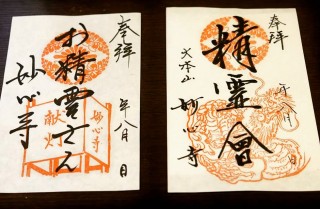 奉拝
お精霊さん
妙心寺
年八月 日
献灯
妙心寺
奉拝
精霊會
大本山 妙心寺
年八月 日